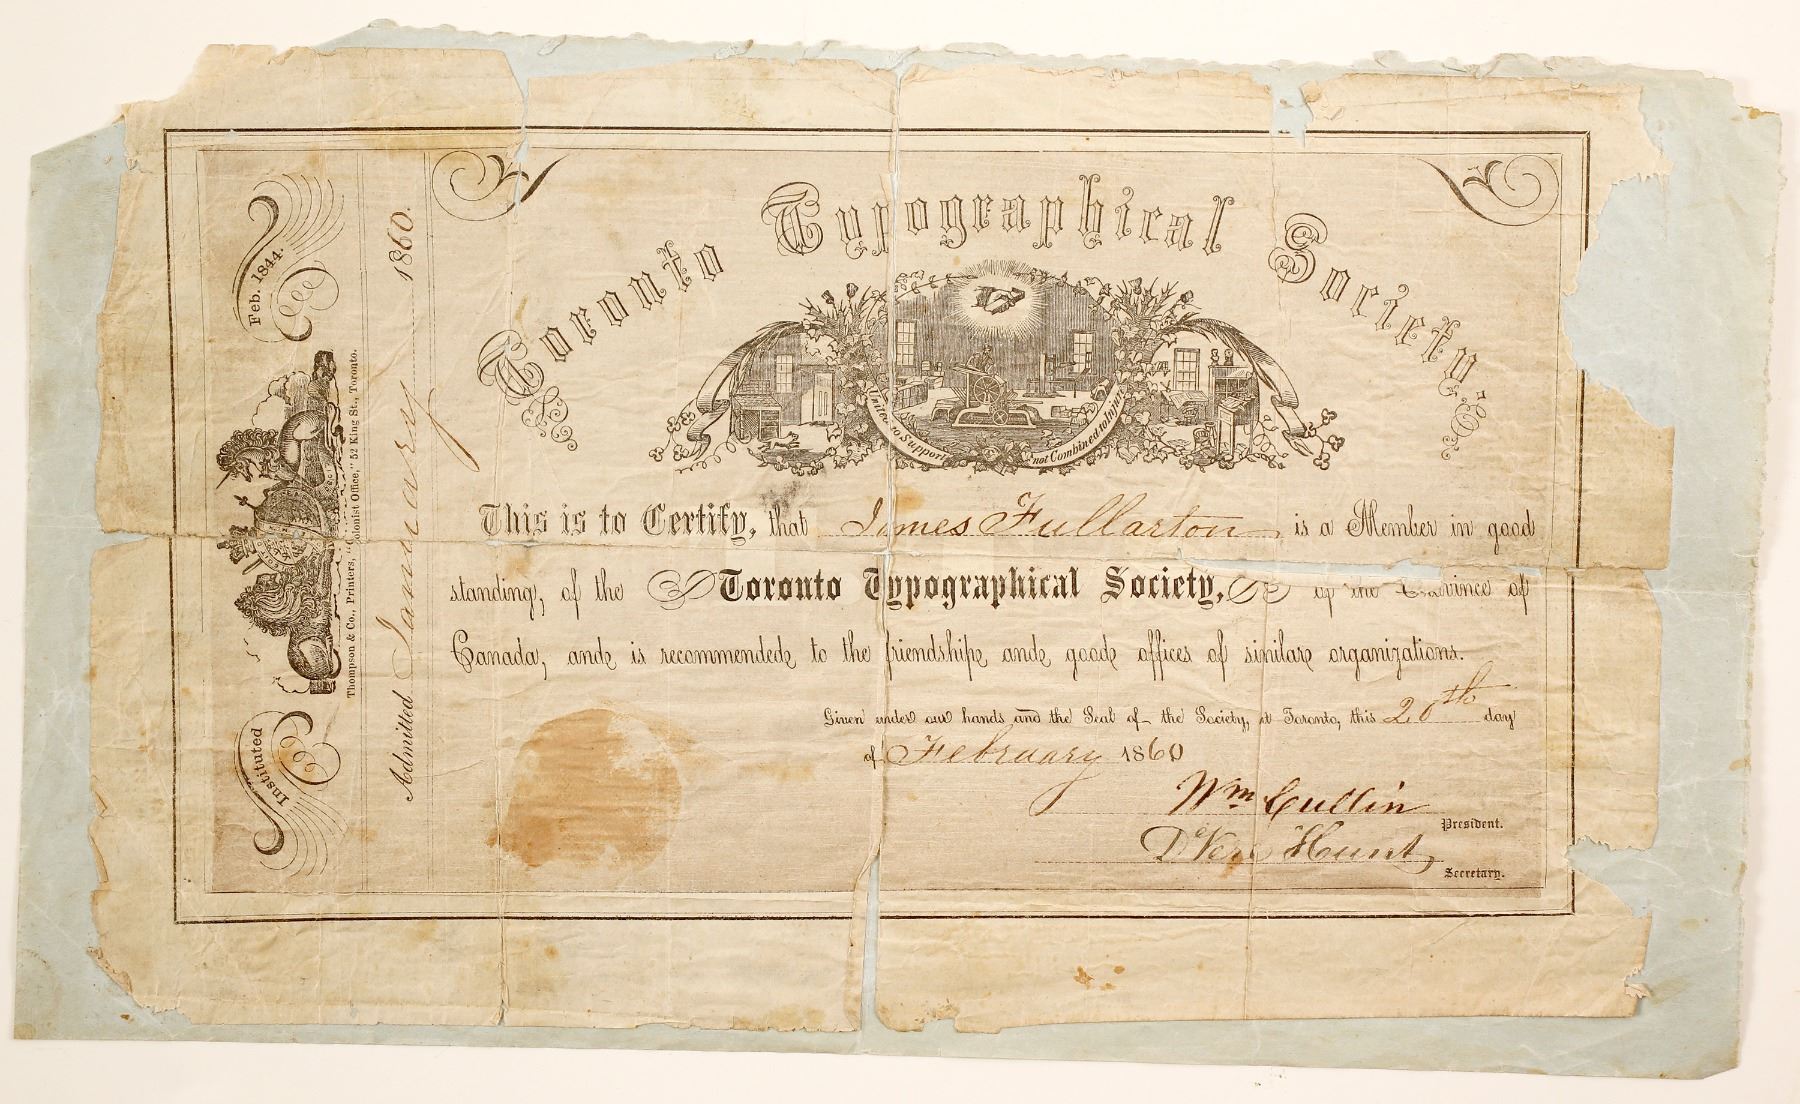 Instituted Feb. 1844.
Thompson & Co., Printers, "Colonist Office," 52 King St., Toronto.
Admitted January 1860.
Toronto Typographical Society.
United to Support not Combined to Injure
This is to Certify, that James Fullarton is a Member in good
standing, of the Toronto Typographical Society, of the Province of
Canada, and is recommended to the friendship and good offices of similar organizations.
Given under our hands and the Seal of the Society, at Toronto, this 20th day
of February 1860
Wm Cullin
President.
De Vere Hunt
Secretary.